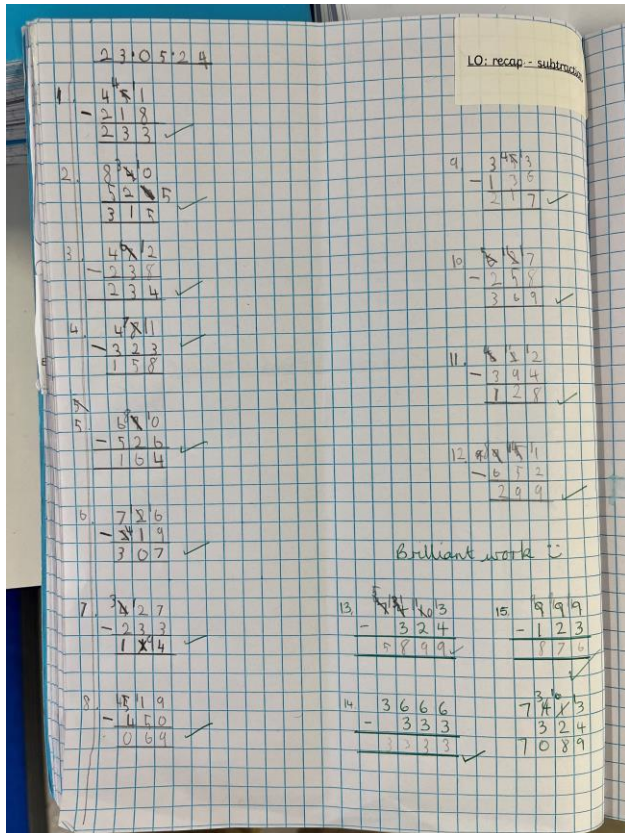 23.05.24
LO: recap - subtraction
1. 451
- 218
233
2. 840
525
315
3. 472
- 238
234
4. 481
- 323
158
5
5. 690
- 526
164
6. 726
- 419
307
7. 427
- 233
194
8. 519
- 450
069
9 353
- 136
217
10 627
- 258
369
11. 522
- 394
128
12
- 652
299
Brilliant work
13.
- 324
5899
14. 3666
- 333
3333
15. 999
- 123
876
7413
324
7089